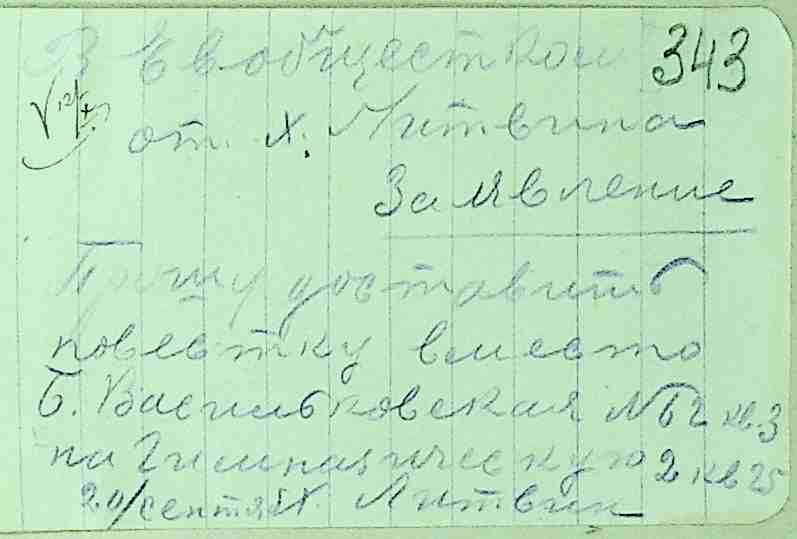 В Евобщестком 343
от Х. Литвина
Заявление
Прошу доставить
повестку вместо
Б. Васильковская № 62 кв. 3
на Гимназическую 2 кв 25
20/сентя Х. Литвин